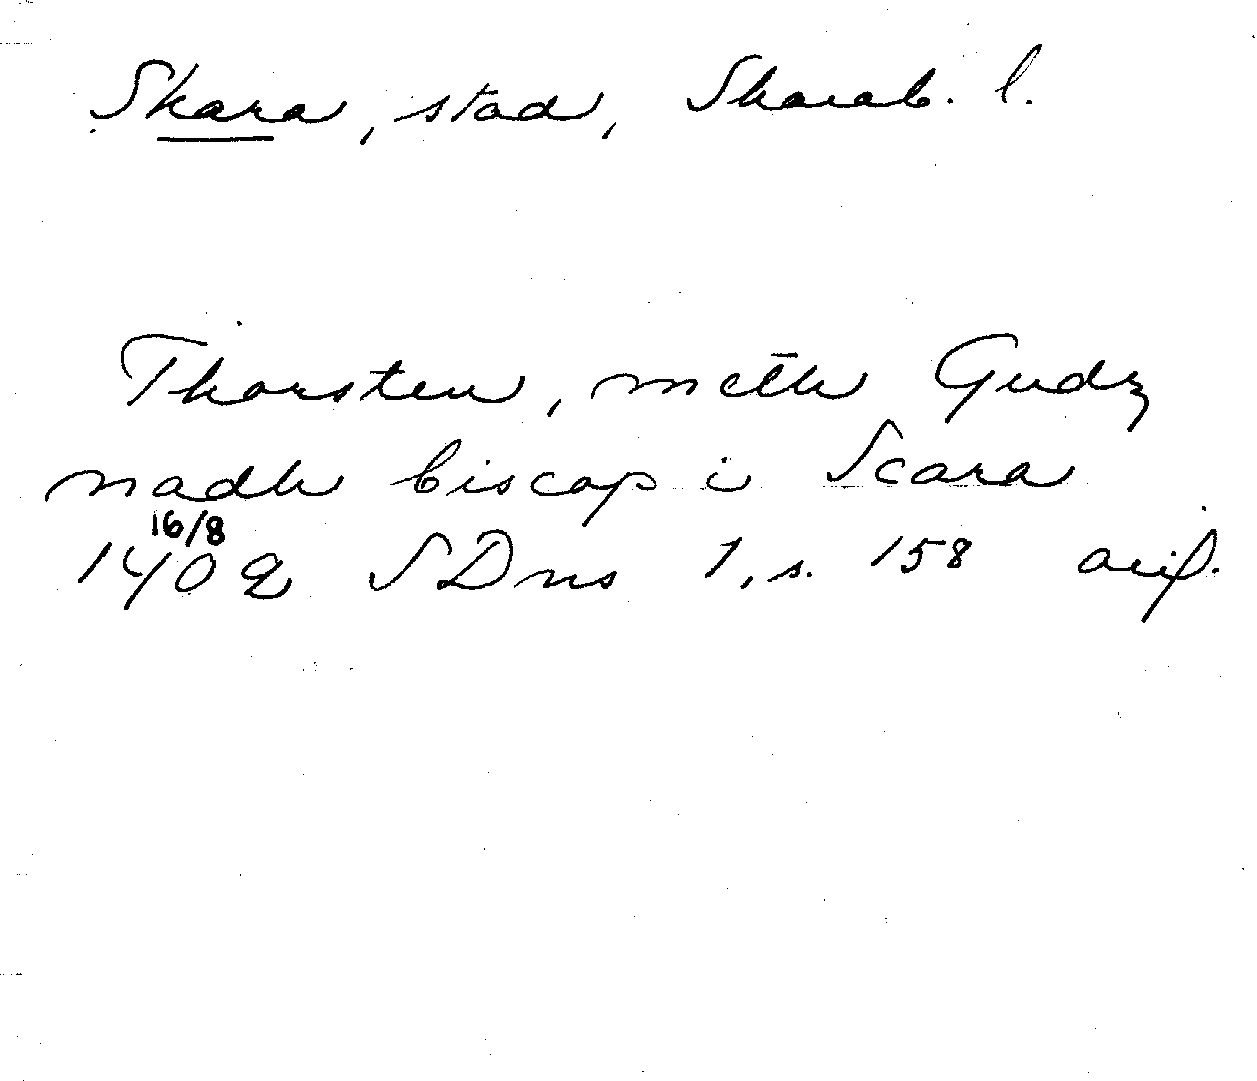 Skara, stad, Skarab. l.
Thorsten, meth Gudz
nadh biscop i Scara
16/8
1402 SDns 1, s. 158 avif.